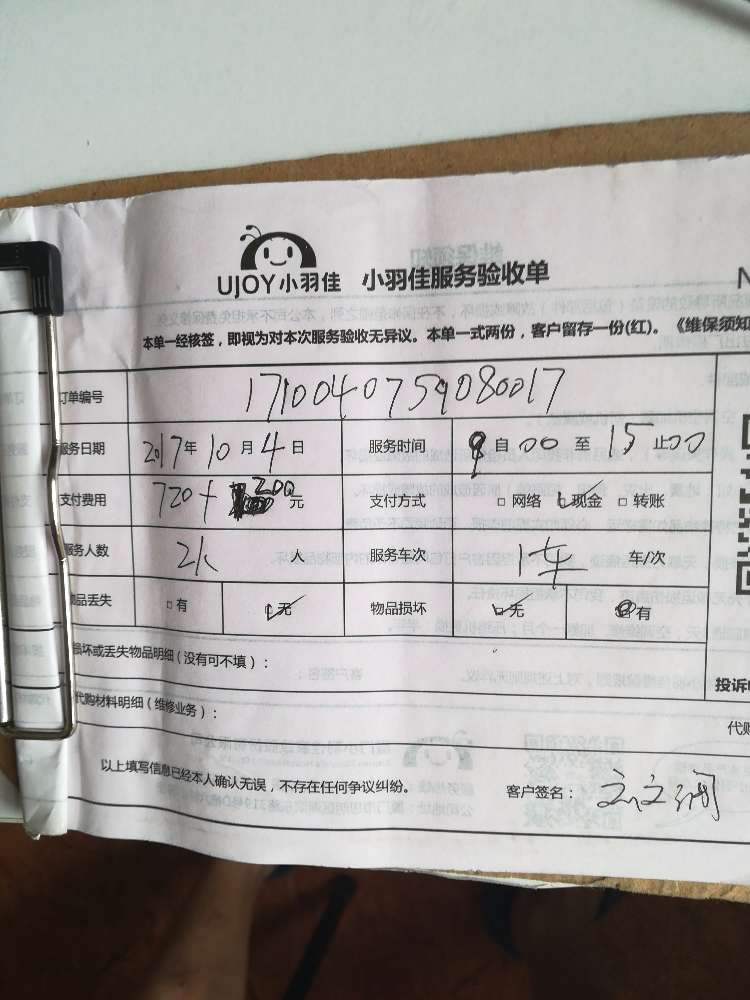 UJOY小羽佳 小羽佳服务验收单
本单一经核签，即视为对本次服务验收无异议。本单一式两份，客户留存一份(红)。《维保须知
订单编号 1710040759080017
服务日期 2017年10月4日 服务时间 9自00至15止00
支付费用 720+200元 支付方式 □网络 ☑现金 □转账
服务人数 2人 人 服务车次 1车 车/次
物品丢失 □有 ☑无 物品损坏 ☑无 有
损坏或丢失物品明细（没有可不填）：
投诉
代购材料明细（维修业务）：
代购
以上填写信息已经本人确认无误，不存在任何争议纠纷。 客户签名：